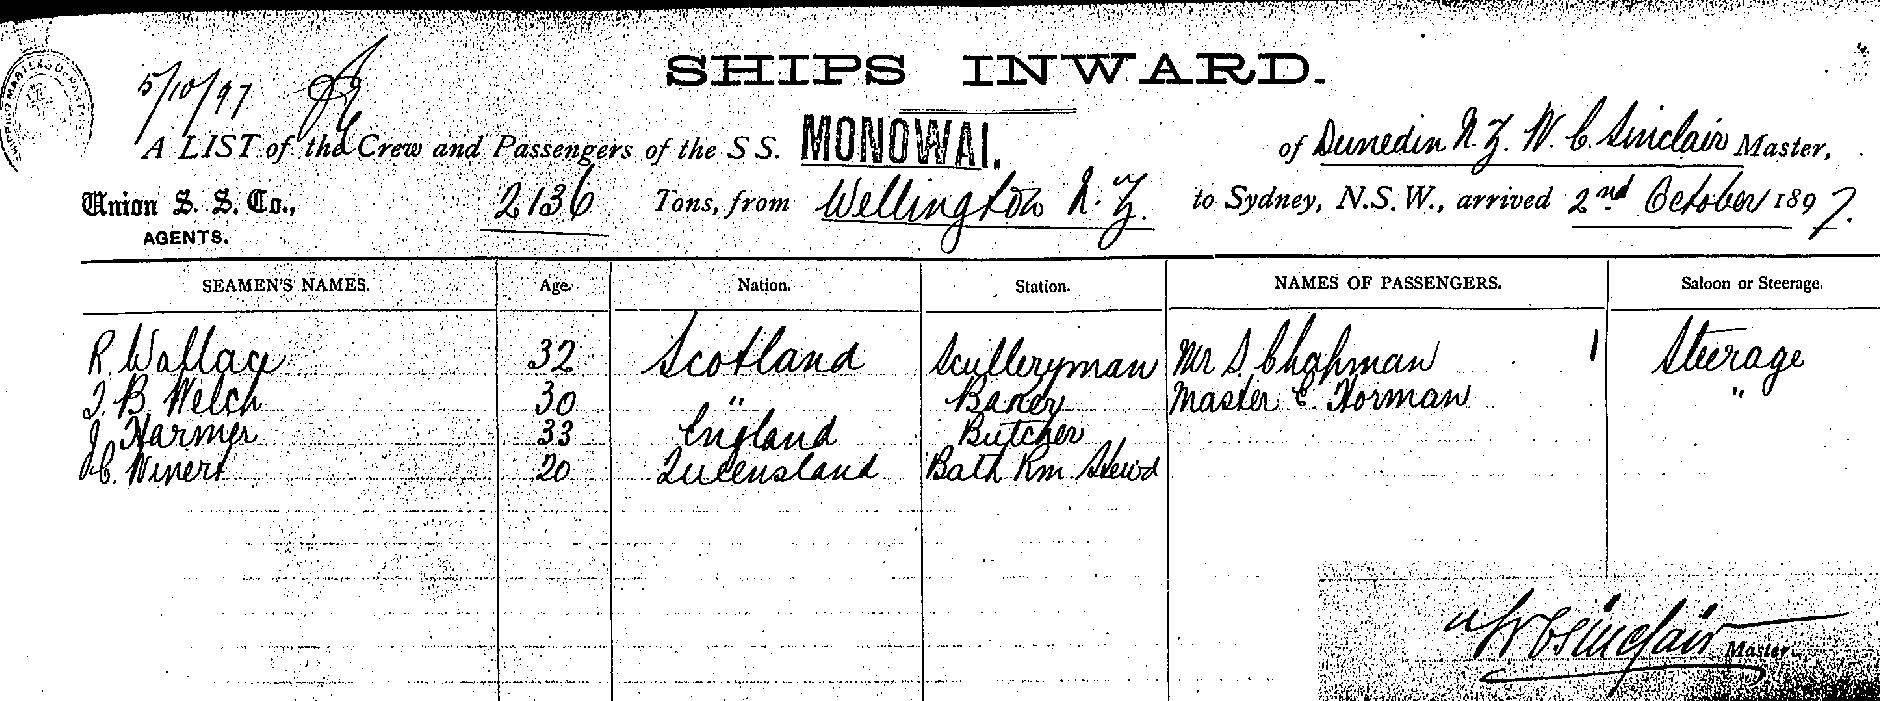 SHIPS INWARD.
5/10/97
A LIST of the Crew and Passengers of the S S. MONOWAI. of Dunedin N. Z. W. C. Sinclair Master,
Union S. S. Co., 2136 Tons, from Wellington N. Z. to Sydney, N.S.W., arrived 2nd October 1897.
AGENTS.
SEAMEN'S NAMES. Age. Nation. Station. NAMES OF PASSENGERS. Saloon or Steerage.
R. Wallace 32 Scotland Sculleryman Mr S. Chapman 1 Steerage
J. B. Welch 30 " Baker Master C. Norman "
J. Harmer 33 England Butcher
C. Winert 20 Queensland Bath Rm Stewd
W C Sinclair Master.